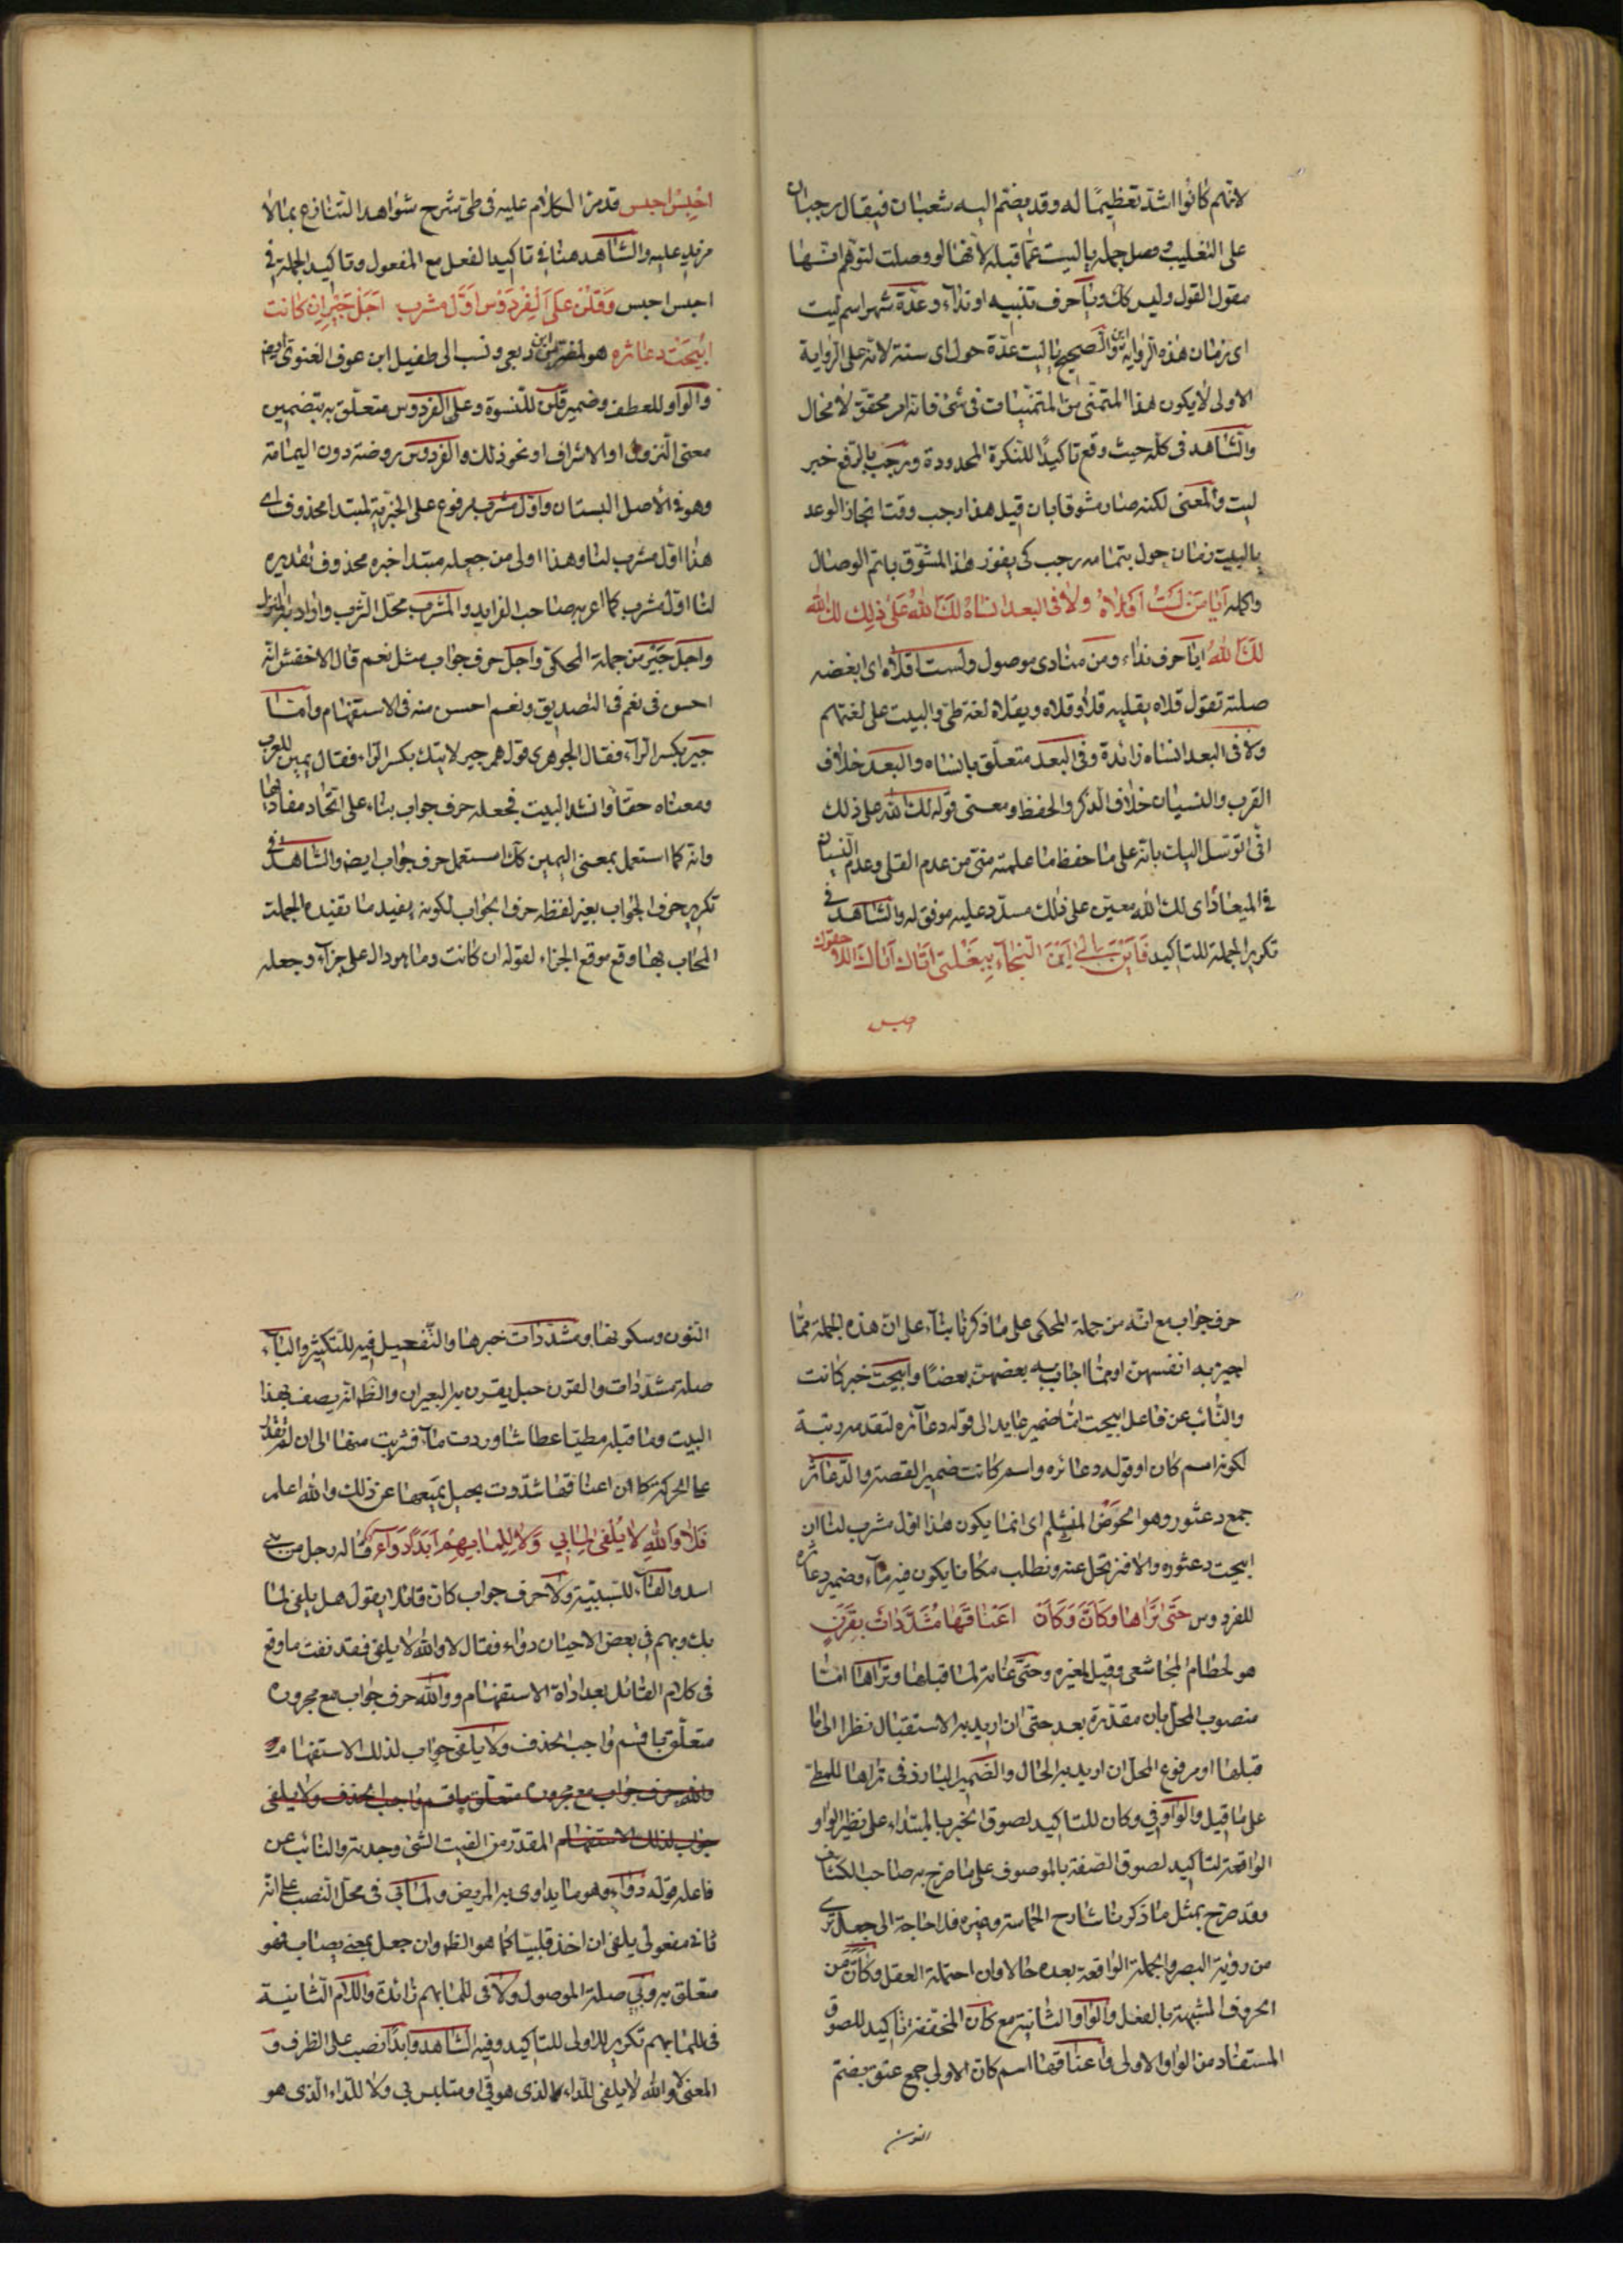 لانهم كانوا اشد تعظيمًا له وقد يضم اليه شعبان فيقال رجبان
على التغليب وصل جملة يا ليت عما قبله لانها لو وصلت لتوهم انها
مقول القول وليس كك ويا حرف تنبيه او نداء وعدة شهر اسم ليت
اى زمان هذه الرواية والصحيح يا ليت عدة حول اى سنة لانه على الرواية
الاولى لا يكون هذا المتمنى من المتمنيات فى شئ فانه امر محقق لا محال
والشاهد فى كله حيث وقع تاكيدًا للنكرة المحدودة ورجب بالرفع خبر
ليت والمعنى لكنه صار مشوقا بان قيل هذا رجب وقت انجاز الوعد
يا ليت زمان حول بتمامه رجب كى يفوز هذا المشوق باتم الوصال
واكله أيا من لست اقلاه ولا فى البعد انساه لك الله على ذلك لك الله
لك الله ايا حرف نداء ومن منادى موصول ولست اقلاه اى ابغضه
صلته تقول قلاه يقليه قلا وقلاه ويقلاه لغة طى والبيت على لغتهم
ولا فى البعد انساه زائدة وفى البعد متعلق بانساه والبعد خلاف
القرب والنسيان خلاف الذكر والحفظ ومعنى قوله لك لله على ذلك
انى اتوسل اليك بانه على ما حفظ ما علمته منى من عدم القلى وعدم النسيان
فى الميعاد اى لك الله معين على ذلك مسدد عليه موفق له والشاهد فى
تكرير الجملة للتاكيد فَاَيْنَ اِلىٰ اَيْنَ النجاء بِبَغْلَتى اتاك اتاك اللاحقوك
احبس
احْبِسْ احبس قد مر الكلام عليه فى طى شرح شواهد التنازع بما لا
مزيد عليه والشاهد هنا فى تاكيد الفعل مع المفعول وتاكيد الجملة فى
احبس احبس وَقَلْنَ عَلَى الْفِرْدَوْسِ اَوَّلُ مشرب اَجَلْ جَيْرِ اِن كانت
اُبيحَتْ دعاثره هو لمضرس ابن ربعى ونسب الى طفيل ابن عوف الغنوى ايض
والواو للعطف وضمير قلن للنسوة وعلى الفردوس متعلق به بتضمين
معنى النزول او الاشراف او نحو ذلك والفردوس روضة دون اليمامة
وهو فى الاصل البستان واول مشرب مرفوع على الخبرية لمبتدا محذوف اى
هذا اول مشرب لنا وهذا اولى من جعله مبتدا خبره محذوف تقديره
لنا اول مشرب كما اعربه صاحب الفرايد والمشرب محل الشرب واراد به
واجل جير من جملة المحكى واجل حرف جواب مثل نعم قال الاخفش انه
احسن فى نعم فى التصديق ونعم احسن منه فى الاستفهام واما
جير بكسر الراء فقال الجوهرى قولهم جير لاتيتك بكسر الراء فقال يمين للعرب
ومعناه حقًا وانشد البيت فجعله حرف جواب بناء على اتحاد مفادهما
وانه كما استعمل بمعنى اليمين كك استعمل حرف جواب ايض والشاهد فى
تكرير حرف الجواب بغير لفظه حرف الجواب لكونه يفيد ما تفيده الجملة
المجاب بها وقع موقع الجزاء لقوله ان كانت وما هو دال على جزاء وجعله
حرف جواب مع انه من جملة المحكى على ما ذكرنا بناء على ان هذه الجملة مما
اجيز به انفسهن او مما اجاب به بعضهن بعضًا وابيحت خبر كانت
والنائب عن فاعل ابيحت اما ضمير عايد الى قوله دعاثره لتقدمه رتبة
لكونه اسم كان او قوله دعاثره واسم كانت ضمير القصة والدعاثر
جمع دعثور وهو الحوض المنثلم اى انما يكون هذا اول مشرب لنا ان
ابيحت دعثوره والا فنرتحل عنه ونطلب مكانا يكون فيه ماء وضمير دعاثره
للفردوس حَتّى تَرَاها وَكَاَنَّ وَكَاَنْ اَعْنَاقَها مُشَدَّدَاتٌ بِقَرَنٍ
هو لخطام المجاشعى وقيل لغيره وحتى غاية لما قبلها وتراها اما
منصوب المحل بان مقدرة بعد حتى ان اريد به الاستقبال نظرا الى ما
قبلها او مرفوع المحل ان اريد به الحال والضمير البارز فى تراها للمطى
على ما قيل والواو فى وكان للتاكيد لصوق الخبر بالمبتداء على نظير الواو
الواقعة لتاكيد لصوق الصفة بالموصوف على ما صرح به صاحب الكشاف
وقد صرح بمثل ما ذكرنا شارح الحماسة وغيره فلا حاجة الى جعل ترى
من رؤية البصر والجملة الواقعة بعده حالا وان احتمله العقل وكان من
الحروف المشبهة بالفعل والواو الثانية مع كان المخففة تاكيد للصوق
المستفاد من الواو الاولى واعناقها اسم كان الاولى جمع عنق بضم
النون
النون وسكونها ومشددات خبرها والتفعيل فيه للتكثير والباء
صلة مشددات والقرن حبل يقرن به البعيران والظ انه يصف بهذا
البيت وما قبله مطيا عطاشا وردت ماء فشربت منها الى ان لم تقدر
على الحركة كان اعناقها شدوت بحبل يمنعها عن ذلك والله اعلم
فَلا وَاللهِ لا يُلْفى لِما بي وَلا لِلِما بِهِمْ اَبَدًا دَوَاءٌ قاله رجل من بنى
اسد والفاء للسببية ولا حرف جواب كان قائلا يقول هل يلفى لما
بك وبهم فى بعض الاحيان دواء فقال لا والله لا يلفى فقد نفت ما وقع
فى كلام القائل بعد اداة الاستفهام ووالله حرف جواب مع مجروره
متعلق باقسم واجب الحذف ولا يلفى جواب لذلك الاستفهام
والله حرف جواب مع مجروره متعلق باقسم واجب الحذف ولا يلفى
جواب لذلك الاستفهام المقدر من الفيت الشئ وجدته والنائب عن
فاعله قوله دواء وهو ما يداوى به المريض ولما بى فى محل النصب على انه
ثانى مفعولى يلفى ان اخذ قلبيا كما هو الظ وان جعل بمعنى يصاب فهو
متعلق به وبى صلة الموصول ولا فى للما بهم زائدة واللام الثانية
فى للما بهم تكرير للاولى للتاكيد وفيه الشاهد وابدًا نصب على الظرف و
المعنى لا والله لا يلفى للداء الذى هو بى او متلبس بى ولا للداء الذى هو